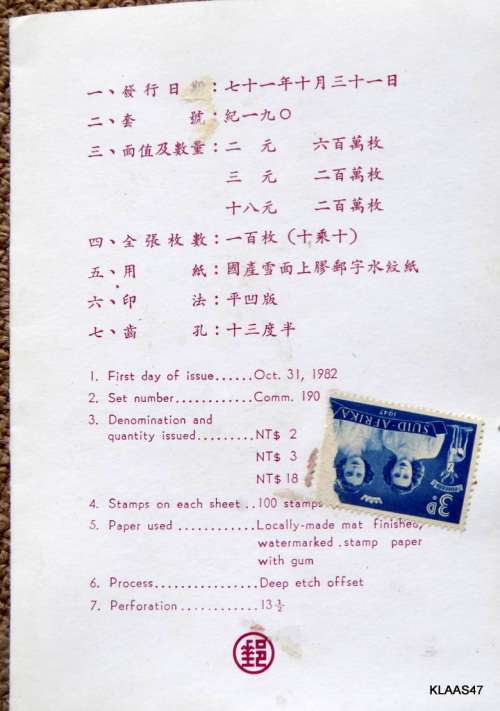 一、發行日期：七十一年十月三十一日
二、套號：紀一九〇
三、面值及數量：二元 六百萬枚
三元 二百萬枚
十八元 二百萬枚
四、全張枚數：一百枚（十乘十）
五、用紙：國產雪面上膠郵字水紋紙
六、印法：平凹版
七、齒孔：十三度半
1. First day of issue......Oct. 31, 1982
2. Set number............Comm. 190
3. Denomination and
quantity issued.........NT$ 2
NT$ 3
NT$ 18
4. Stamps on each sheet ..100 stamps
5. Paper used ............Locally-made mat finished,
watermarked .stamp paper
with gum
6. Process...............Deep etch offset
7. Perforation ............13½
郵
SUID-AFRIKA
1947
3D.
KLAAS47